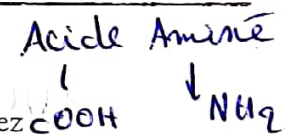 Acide Aminé
ez COOH NH2